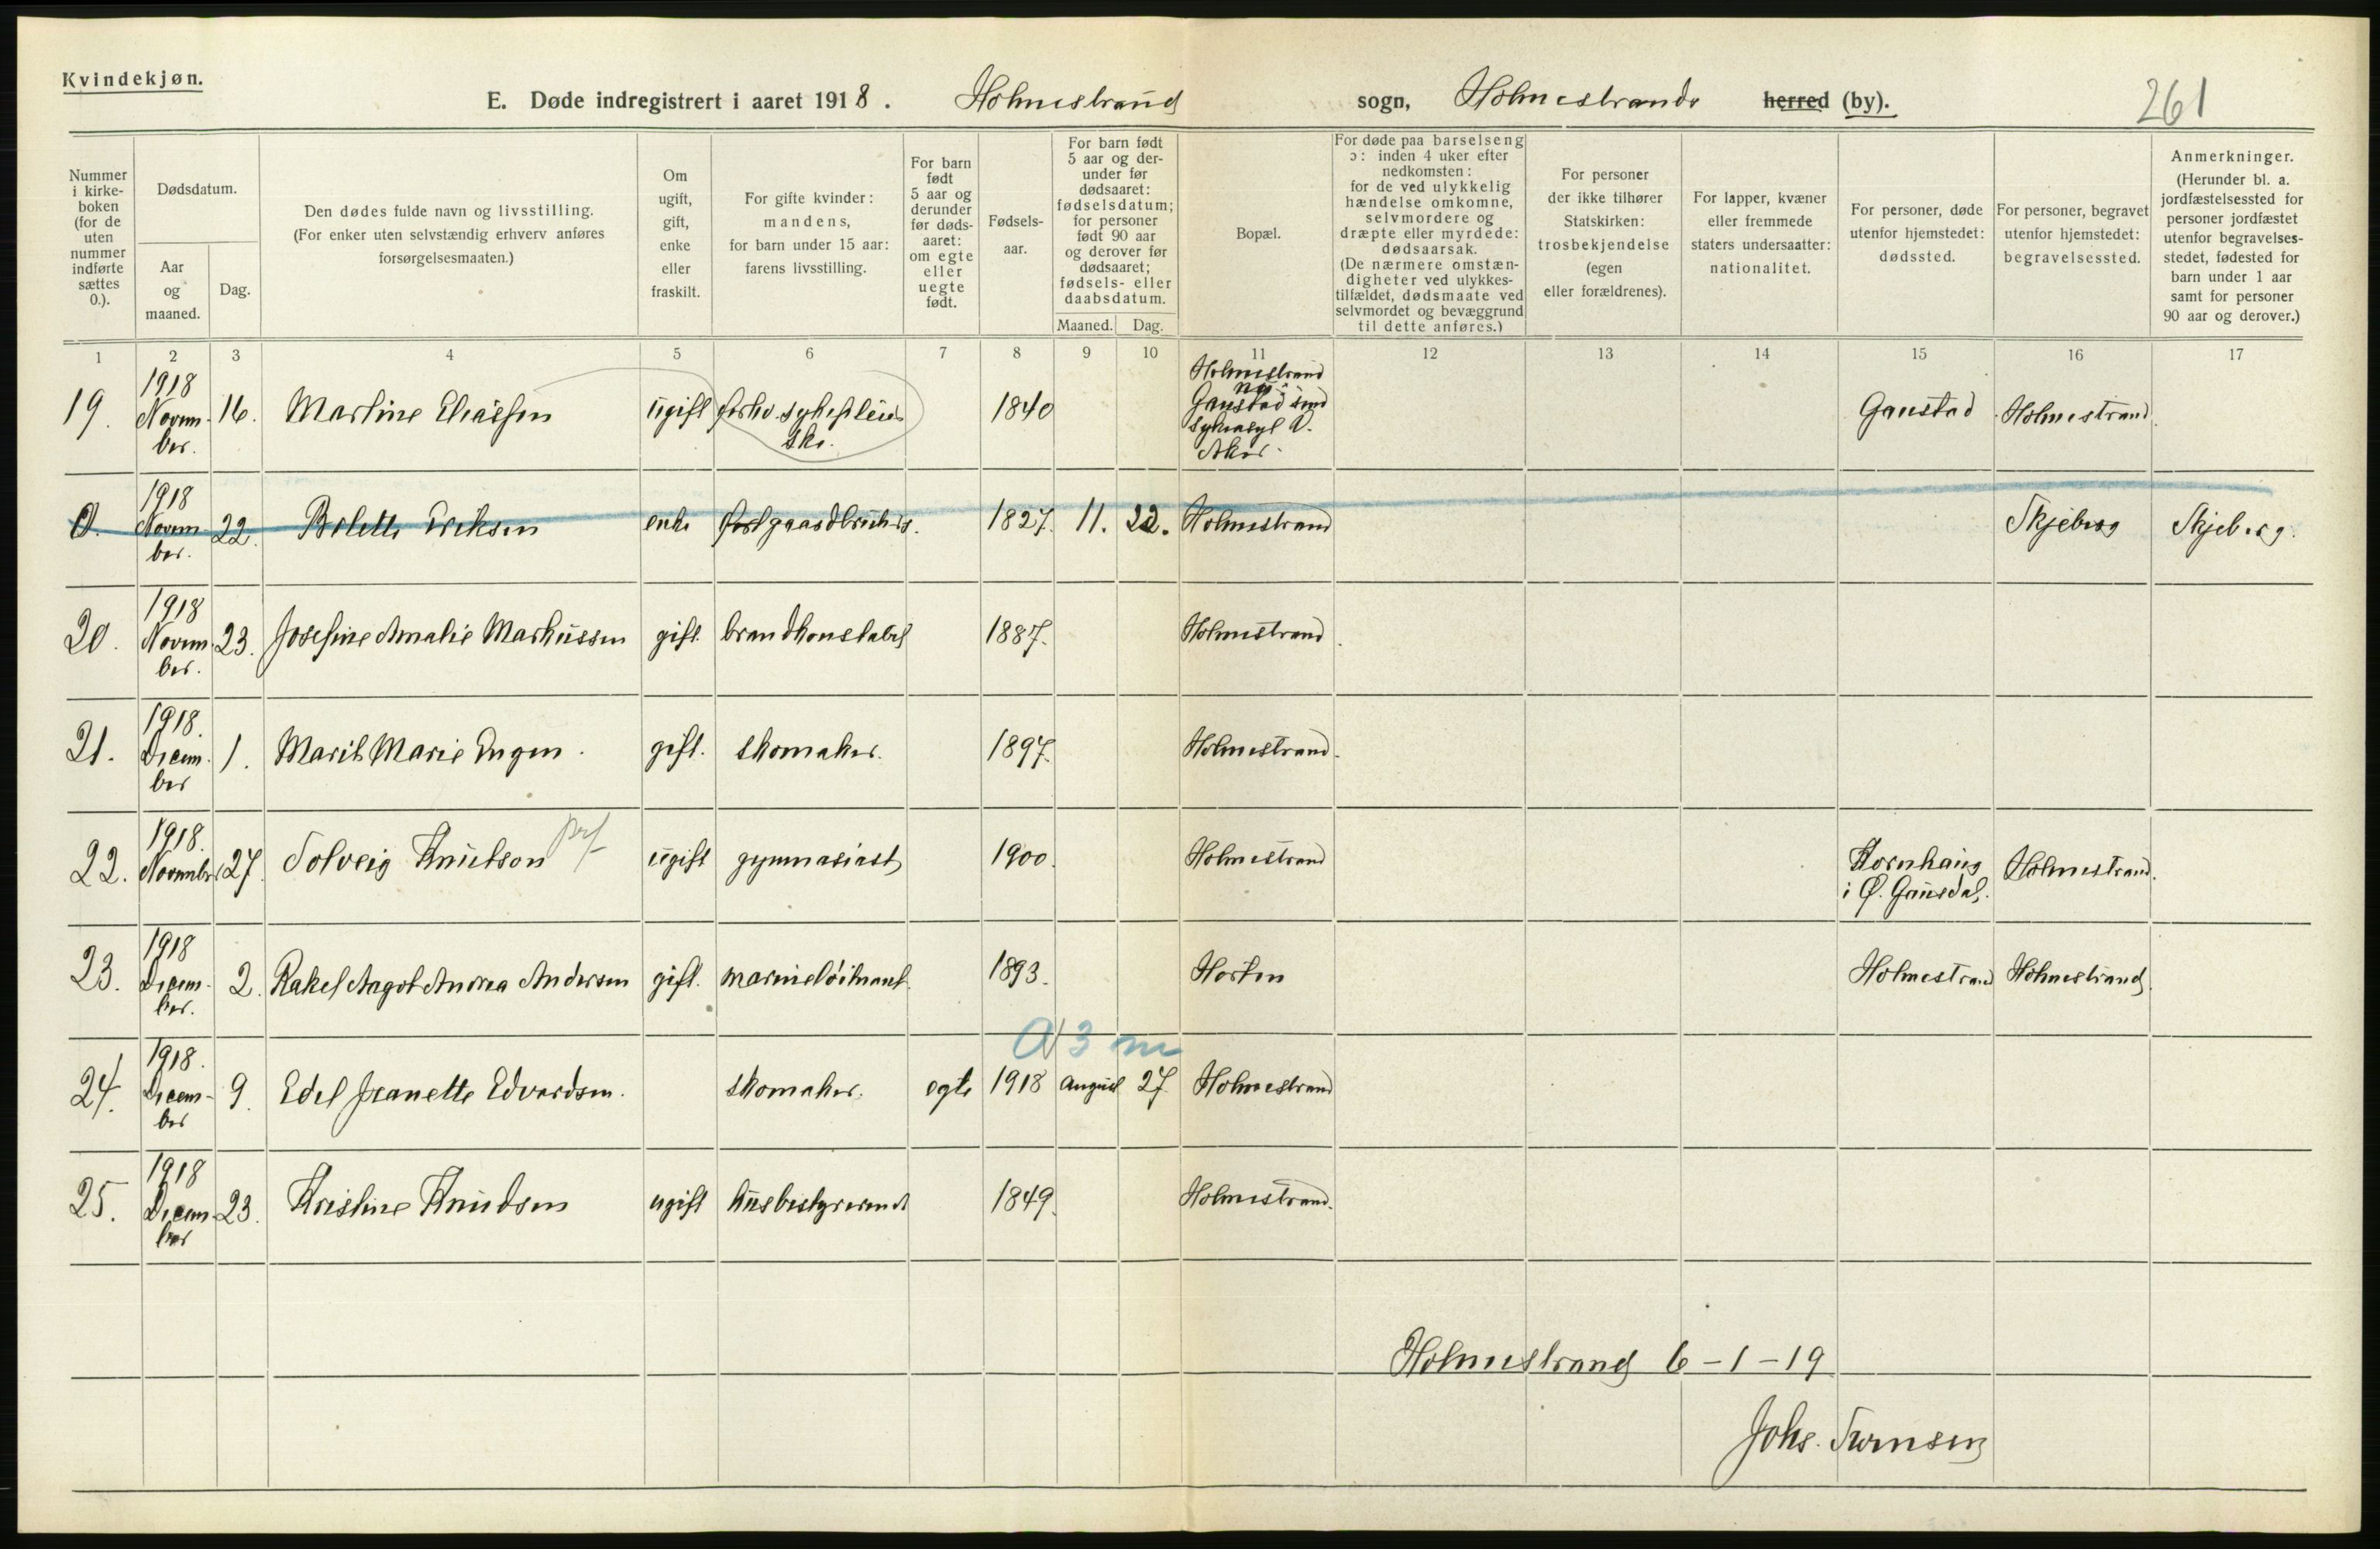 Kvindekjøn.
E. Døde indregistrert i aaret 1918. Holmestrand sogn, Holmestrands herred (by). 261
Nummer i kirke-boken (for de uten nummer indførte sættes 0.).
Dødsdatum.
Aar og maaned.
Dag.
Den dødes fulde navn og livsstilling.
(For enker uten selvstændig erhverv anføres forsørgelsesmaaten.)
Om ugift, gift, enke eller fraskilt.
For gifte kvinder: mandens, for barn under 15 aar: farens livsstilling.
For barn født 5 aar og derunder før døds-aaret: om egte eller uegte født.
Fødsels-aar.
For barn født 5 aar og der-under før dødsaaret: fødselsdatum; for personer født 90 aar og derover før dødsaaret; fødsels- eller daabsdatum.
Maaned. Dag.
Bopæl.
For døde paa barselseng ɔ: inden 4 uker efter nedkomsten: for de ved ulykkelig hændelse omkomne, selvmordere og dræpte eller myrdede: dødsaarsak. (De nærmere omstæn-digheter ved ulykkes-tilfældet, dødsmaate ved selvmordet og bevæggrund til dette anføres.)
For personer der ikke tilhører Statskirken: trosbekjendelse (egen eller forældrenes).
For lapper, kvæner eller fremmede staters undersaatter: nationalitet.
For personer, døde utenfor hjemstedet: dødssted.
For personer, begravet utenfor hjemstedet: begravelsessted.
Anmerkninger. (Herunder bl. a. jordfæstelsessted for personer jordfæstet utenfor begravelses-stedet, fødested for barn under 1 aar samt for personer 90 aar og derover.)
1 2 3 4 5 6 7 8 9 10 11 12 13 14 15 16 17
19. 1918 Novem-ber. 16. Martine Eliassen ugift forhv. sykepleier-ske. 1840 Holmestrand Gaustad sind sykeasyl V. Aker. Gaustad Holmestrand
0. 1918 Novem-ber. 22. Bolette Eriksen enke gaardbruker. 1827. 11. 22. Holmestrand Skjeberg Skjeberg.
20. 1918 Novem-ber. 23. Josefine Amalie Markussen gift brandkonstabel 1887. Holmestrand
21. 1918. Decem-ber 1. Marit Marie Engen. gift. skomaker. 1897. Holmestrand.
22. 1918. November 27. Solveig Knutson ugift gymnasiast 1900. Holmestrand Kornhaug i Ø. Gausdal. Holmestrand.
23. 1918 Decem-ber. 2. Rakel Aagot Andrea Andersen gift. marineløitnant. 1893. Horten Holmestrand Holmestrand.
0/3 m
24. 1918. Decem-ber 9. Edel Jeanette Edvardsen. skomaker. egte 1918 august 27. Holmestrand
25. 1918 Decem-ber 23. Kristine Knudsen ugift husbestyrerinde 1849. Holmestrand.
Holmestrand 6-1-19
Johs.